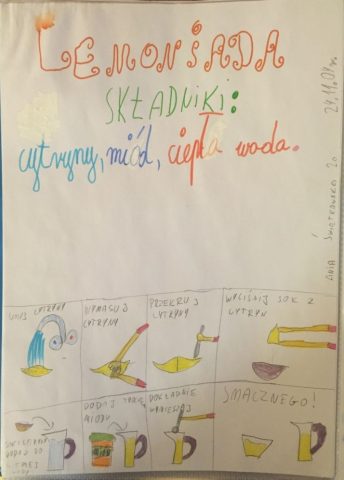 LEMONIADA
SKŁADNIKI:
cytryny, miód, ciepła woda.
24.11.04r.
ANIA ŚWIĄTKOWSKA
UMYJ CYTRYNY
WYMASUJ
CYTRYNY
PRZEKRUJ
CYTRYNY
WYCIŚNIJ SOK Z
CYTRYN
DODAJ
MIODU
DOKŁADNIE
WYMIESZAJ
SMACZNEGO!